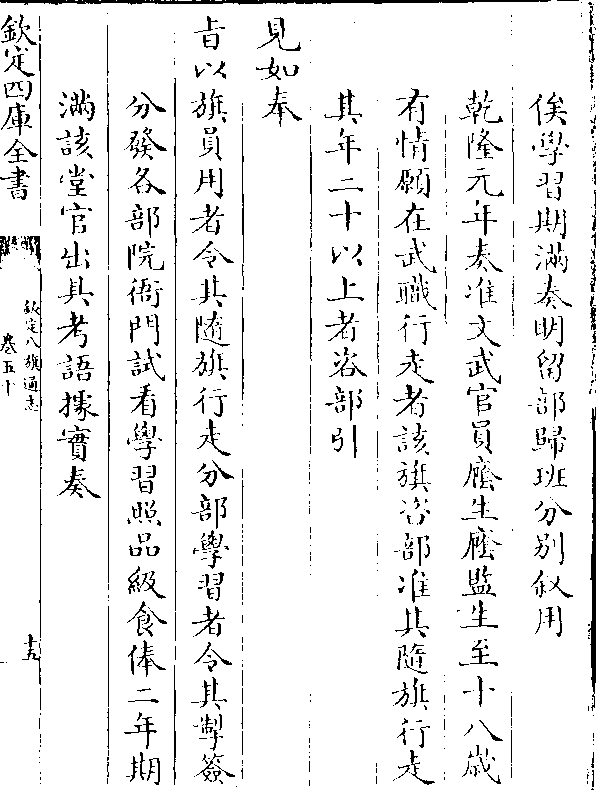 俟學習期滿奏明留部歸班分别叙用
乾隆元年奏准文武官員廕生廕監生至十八歳
有情願在武職行走者該旗咨部准其隨旗行走
其年二十以上者咨部引
見如奉
㫖以旗員用者令其隨旗行走分部學習者令其掣籤
分發各部院衙門試看學習照品級食俸二年期
滿該堂官出具考語據實奏
欽定四庫全書
欽定八旗通志
卷五十
十五